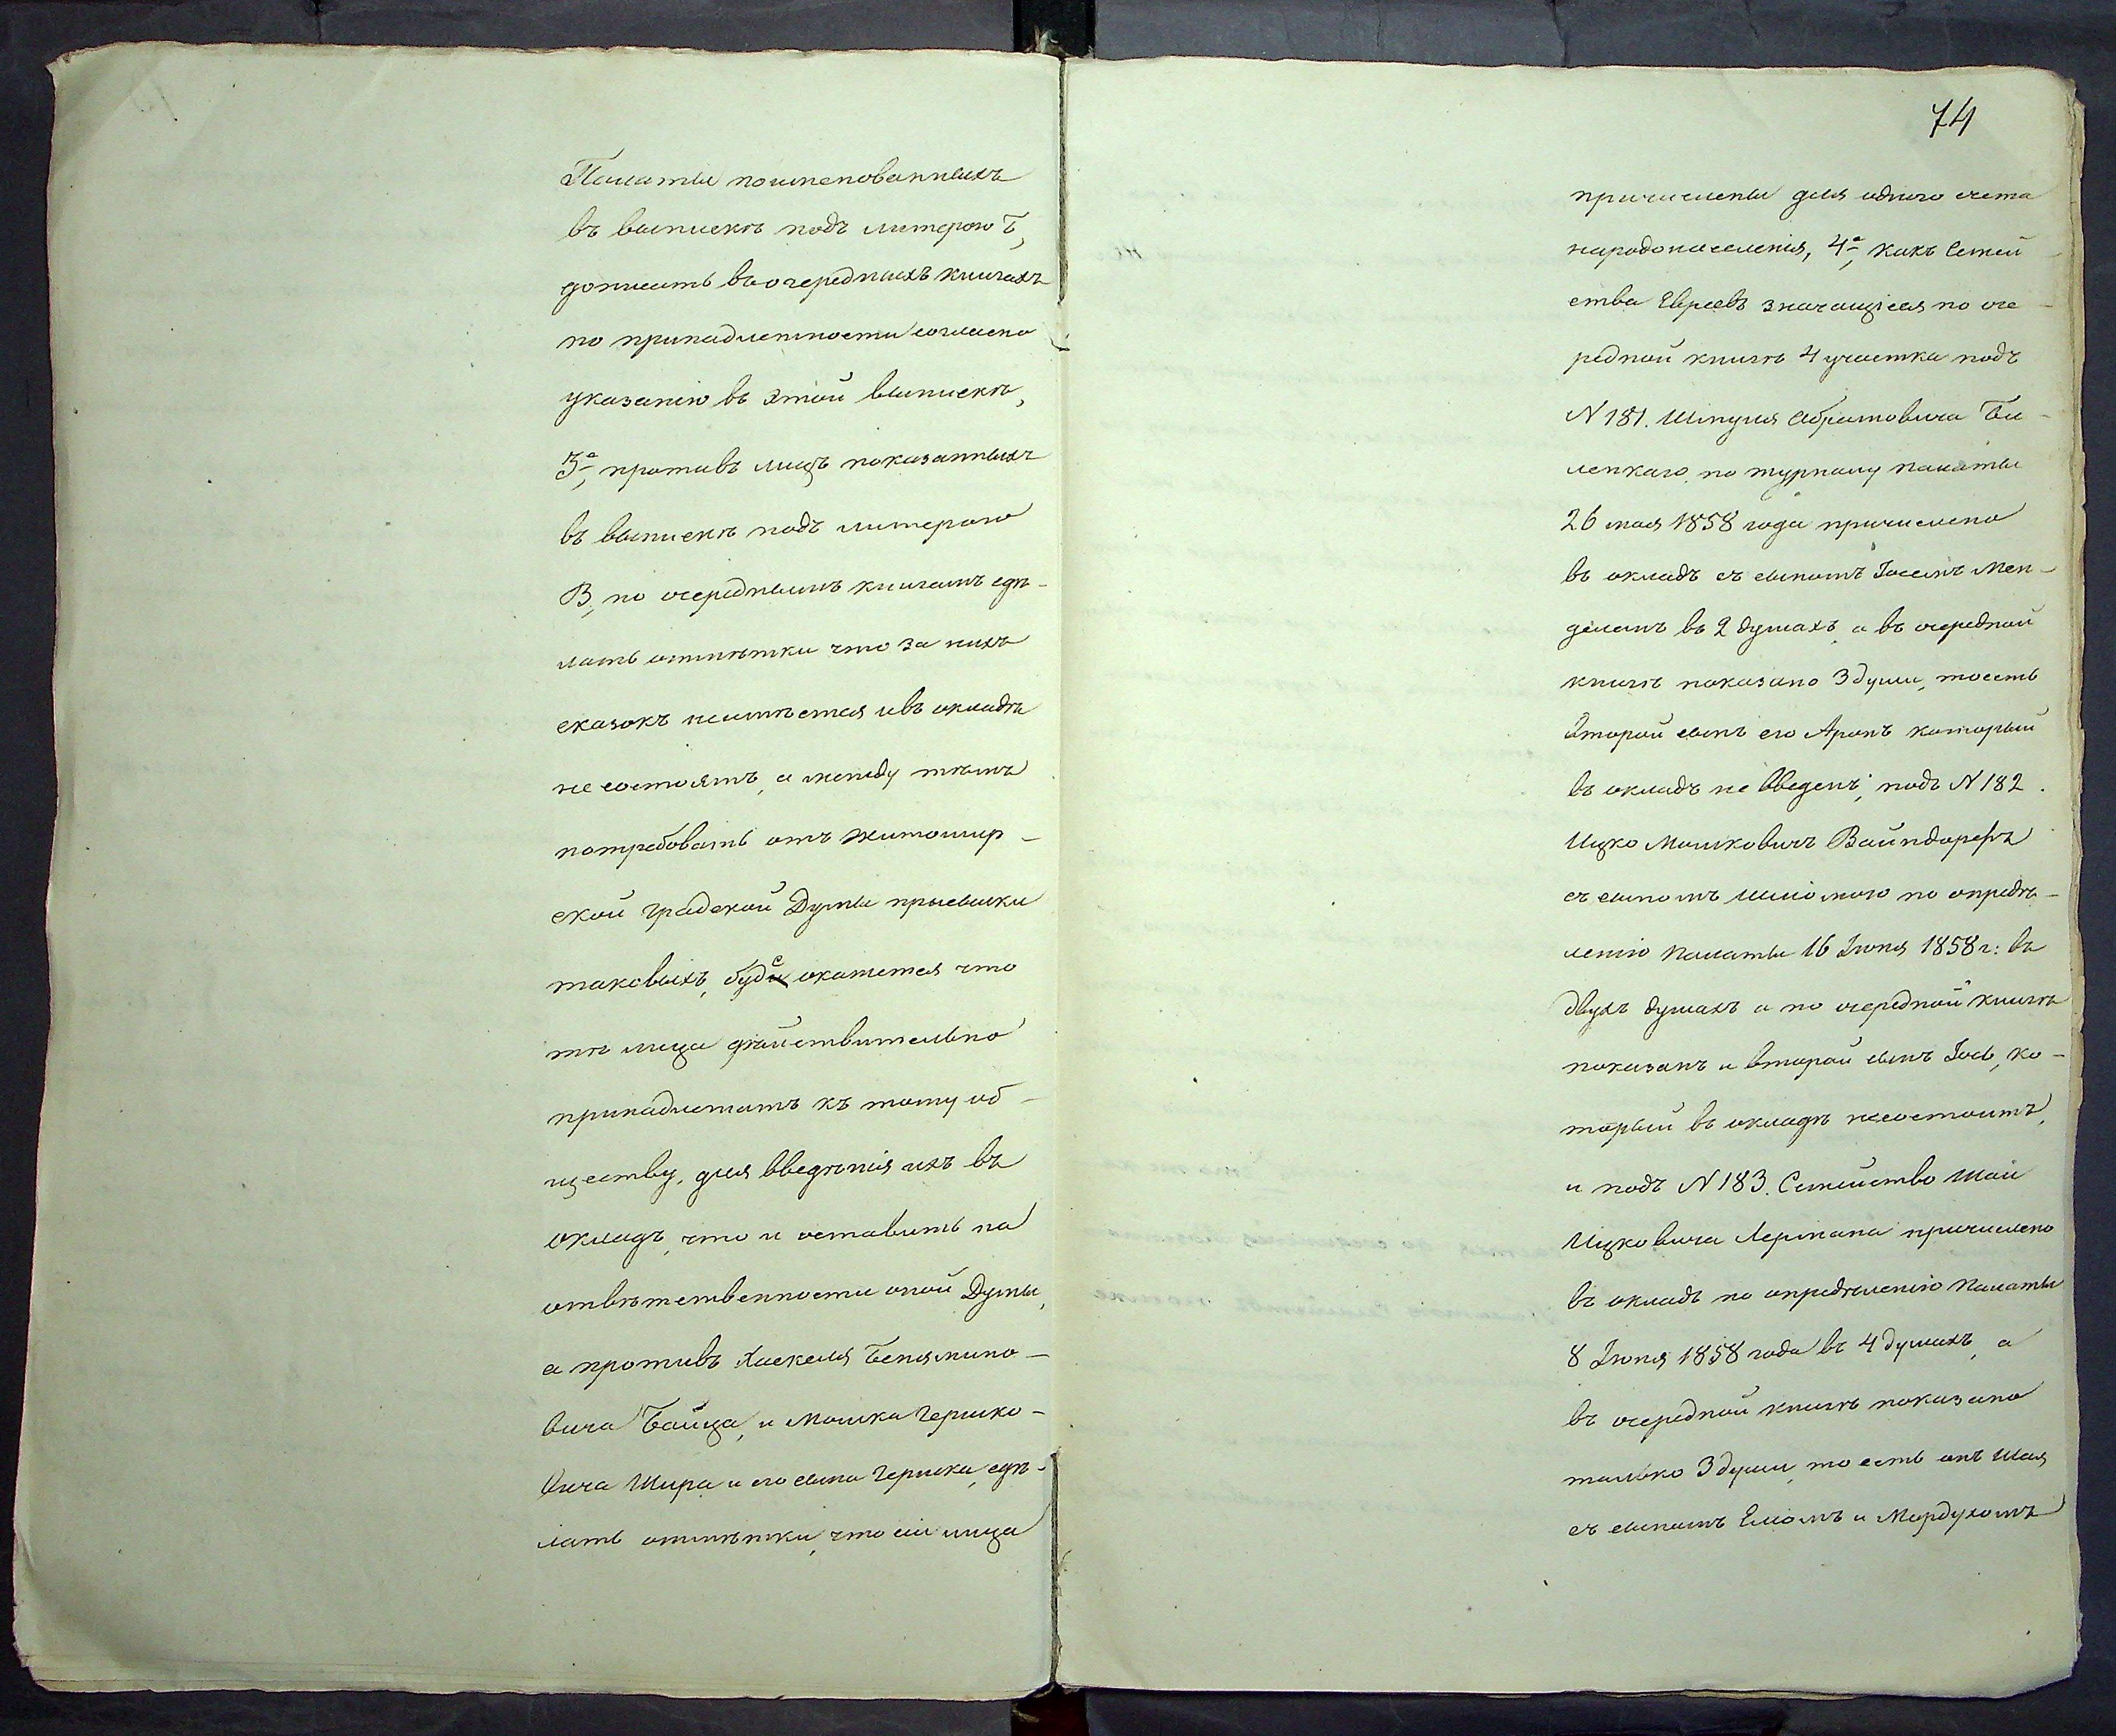 Палаты поименованныхъ
въ выпискѣ подъ литерою Б,
дописать въ очередныхъ книгахъ
по принадлежности согласно
указанію въ этой выпискѣ,
3е, противъ лицъ показанныхъ
въ выпискѣ подъ литерою
В, по очереднымъ книгамъ сдѣ-
лать отмѣтки что за нихъ
сказокъ неимѣется ивъ окладѣ
не состоятъ, а между тѣмъ
потребовать отъ Житомир-
ской градской Думы присылки
таковыхъ, буде окажется что
тѣ лица дѣйствительно
принадлежатъ къ тому об-
ществу, для введѣнія ихъ въ
окладъ, что и оставить на
отвѣтственности оной Думы,
а противъ Хаскеля Бенямино-
вича Байца, и Мошка Гершко-
вича Шира и его сына Гершка, сдѣ-
лать отмѣтки, что сіи лица
74
причислены для однаго счета
народонаселенія, 4е, какъ Семей-
ства Евреевъ значащіеся по оче-
редной книгѣ 4 участка подъ
N 181. Шмуля Абрамовича Би-
ленкаго, по журналу палаты
26 мая 1858 года причислено
въ окладъ съ сыномъ Іосемъ Мен-
делемъ въ 2 душахъ, а въ очередной
книгѣ показано 3 души, тоесть
второй сынъ его Аронъ который
въ окладъ не введенъ; подъ N 182.
Ицко Мошковичъ Вайндорфъ
съ сыномъ Шліомою по опредѣ-
ленію Палаты 16 Іюня 1858 г: въ
двухъ душахъ а по очередной книгѣ
показанъ и второй сынъ Іось, ко-
торый въ окладѣ несостоитъ,
и подъ N 183. Семейство Шаи
Ицковича Лермана причислено
въ окладъ по опредѣленію Палаты
8 Іюня 1858 года въ 4 душахъ, а
въ очередной книгѣ показано
только 3 души, то есть онъ Шая
съ сыномъ Еліомъ и Мордухомъ